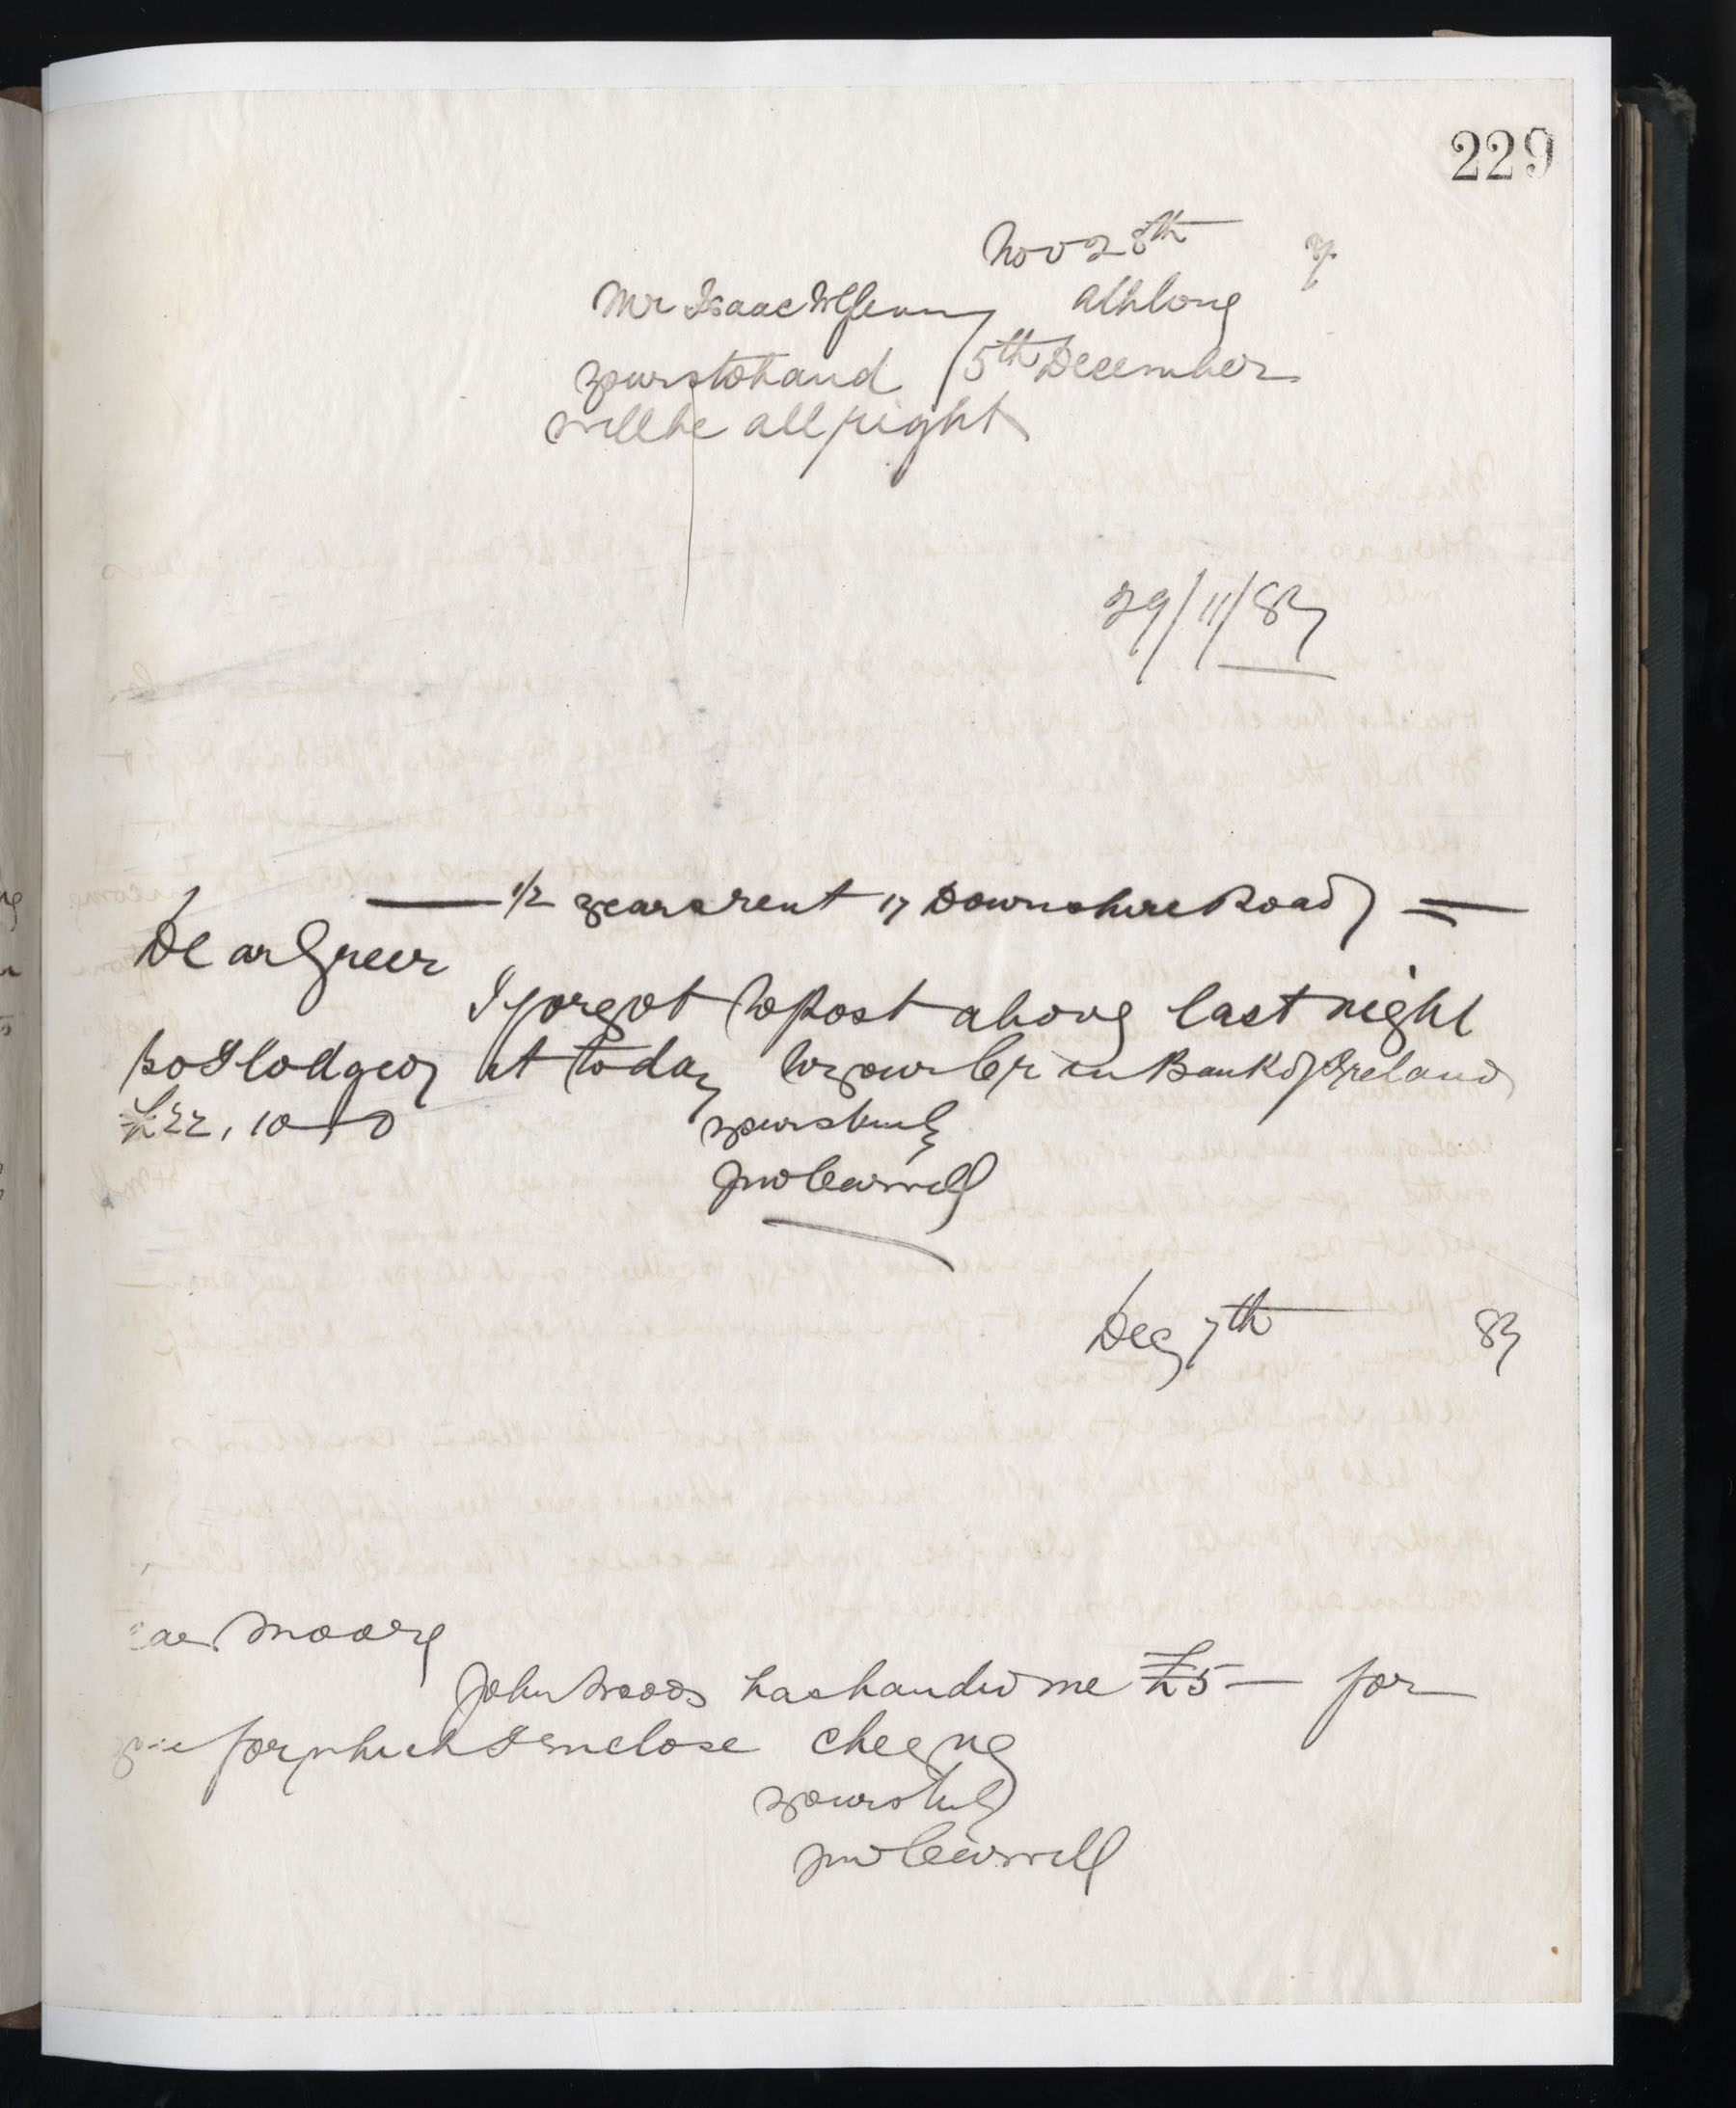 229
Nov 28th
Mr Isaac Athlone
yours to hand 5th December
will be all right
29/11/87
1/2 years rent 17 Downshire Road
Dear Greer
I forgot to Post above last night
so I lodged it today to your Cr in Bank of Ireland
£22, 10 - 0
yours truly
Jno Carvill
Dec 7th 87
Moore
John Woods has handed me £5 - for
for which I enclose cheque
yours truly
Jno Carvill